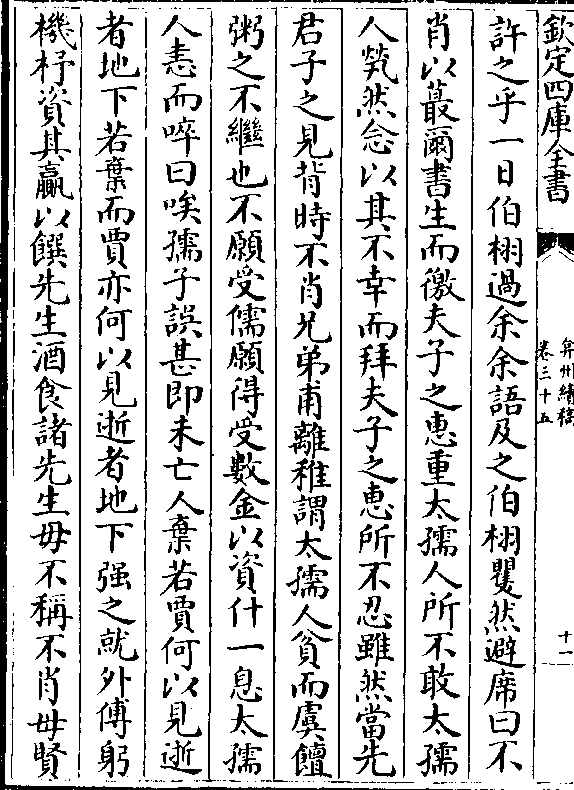 欽定四庫全書
弇州續稿
卷三十五
十一
許之乎一日伯栩過余余語及之伯栩矍然避席曰不
肖以蕞爾書生而徼夫子之惠重太孺人所不敢太孺
人煢然念以其不幸而拜夫子之惠所不忍雖然當先
君子之見背時不肖兄弟甫離稚謂太孺人貧而虞饘
粥之不繼也不願受儒願得受數金以資什一息太孺
人恚而啐曰唉孺子誤甚即未亡人棄若賈何以見逝
者地下若棄而賈亦何以見逝者地下强之就外傅躬
機杼資其贏以饌先生酒食諸先生毋不稱不肖毋賢